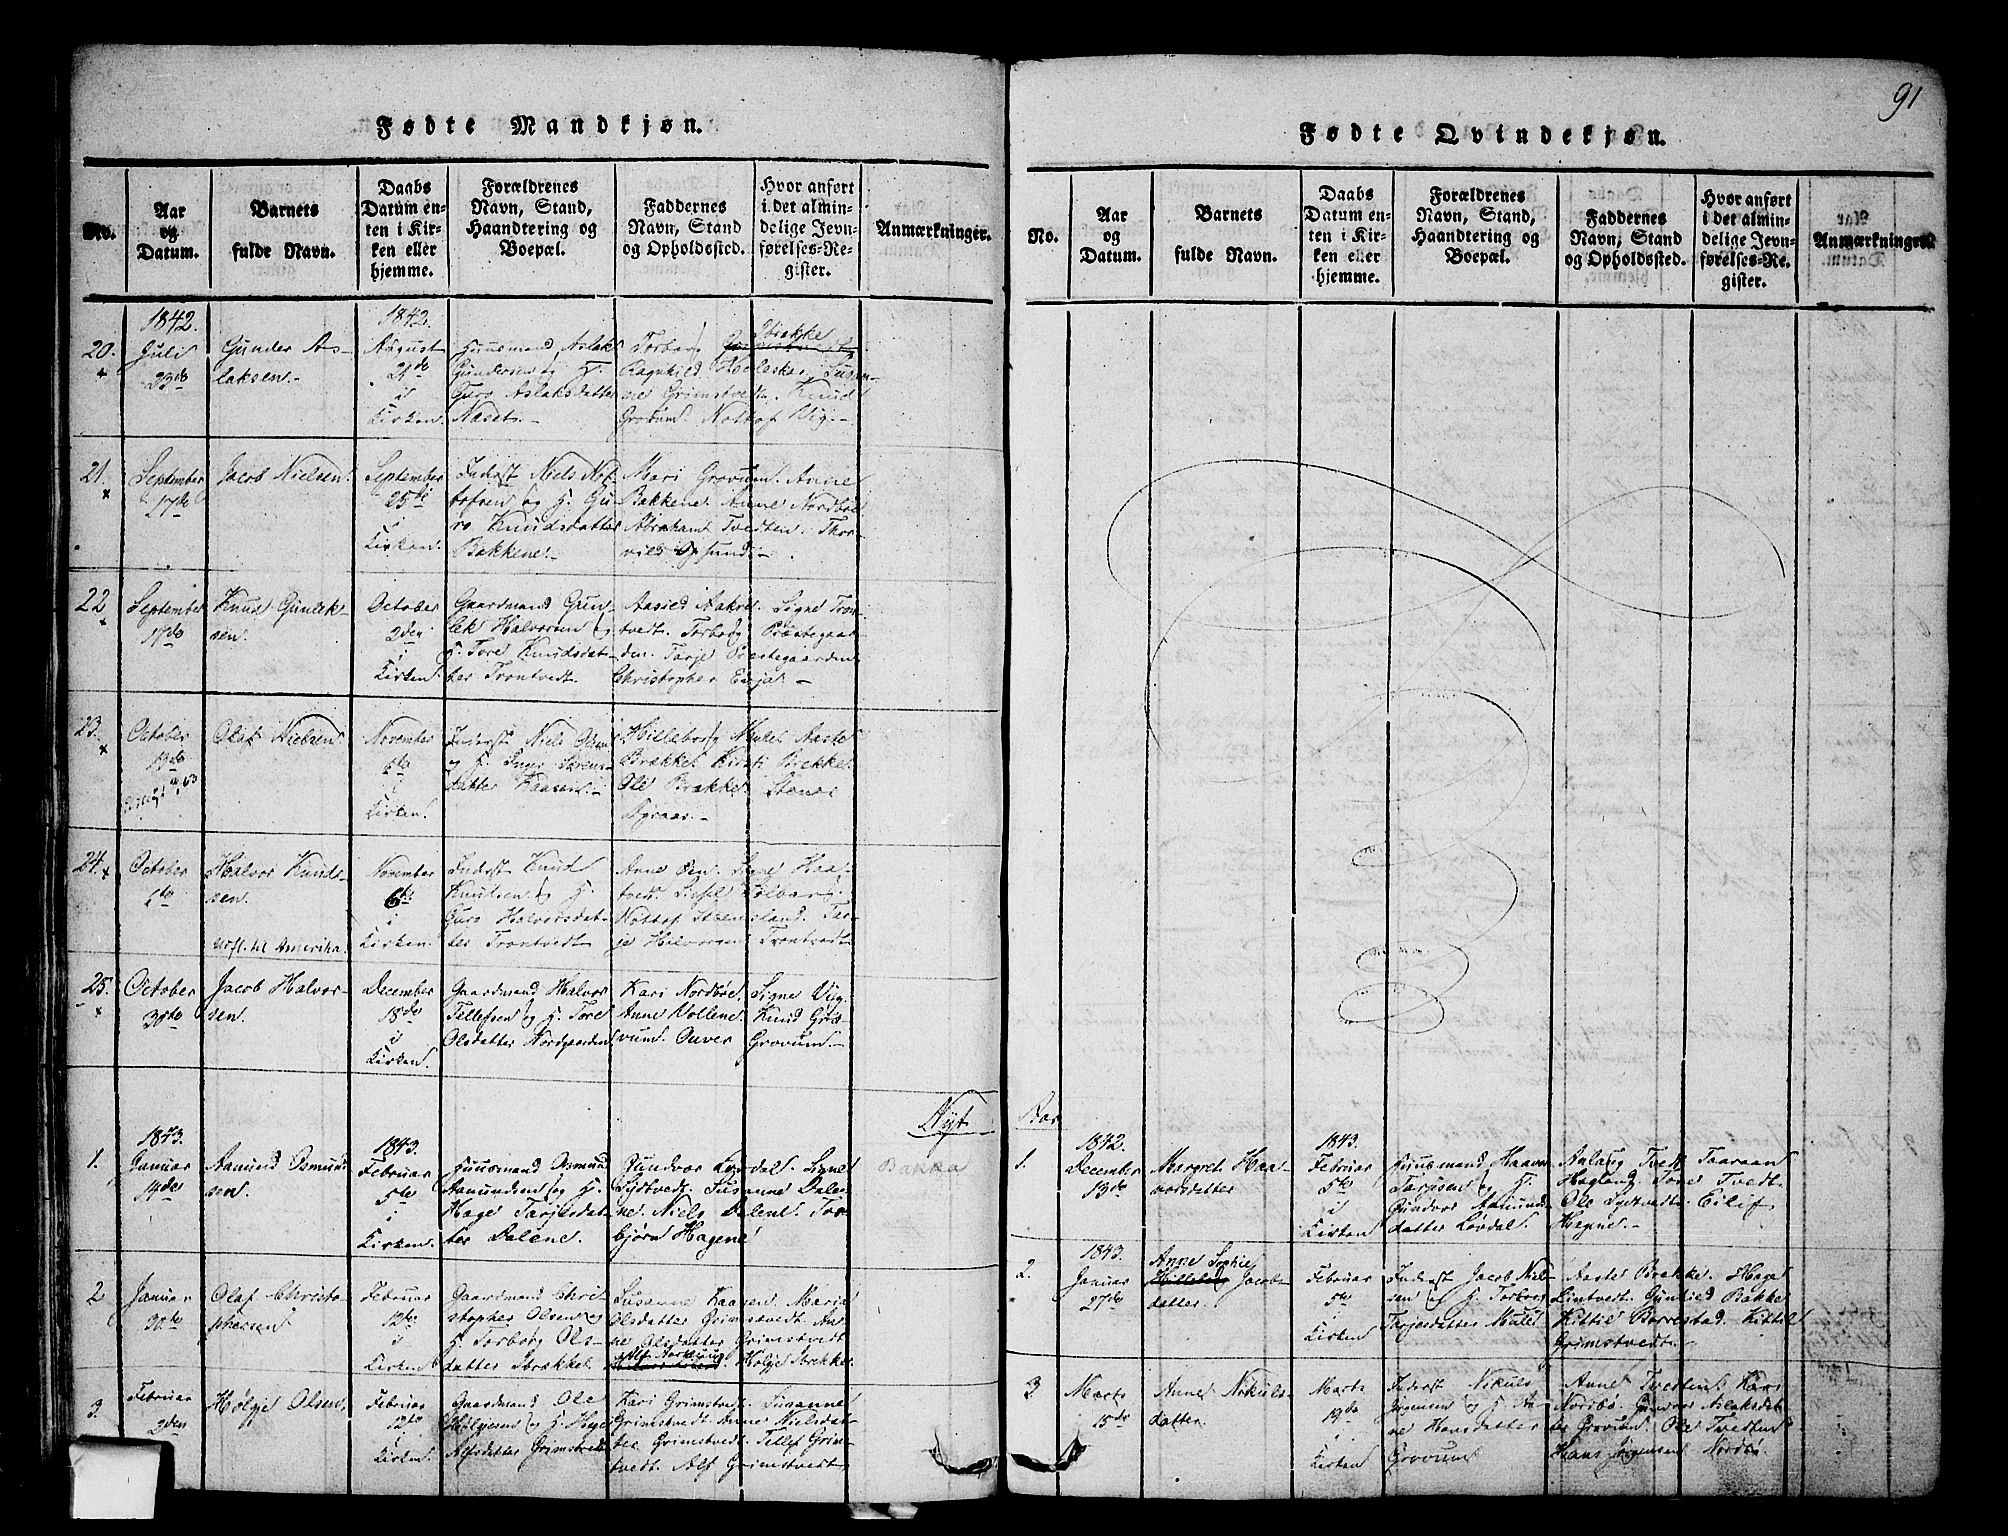 91
Fødte Mandkjøn.
No.
Aar
og
Datum.
Barnets
fulde Navn.
Daabs
Datum en-
ten i Kir-
ken eller
hjemme.
Forældrenes
Navn, Stand,
Haandtering og
Boepæl.
Faddernes
Navn, Stand
og Opholdssted.
Hvor anført
i det almin-
delige Jevn-
førelses-Re-
gister.
Anmærkninger.
20.
1842.
Juli
23de
Gunder As-
laksen.
1842.
August
21de
i
Kirken.
Huusmand Aslak
Gundersen og H.
Guro Aslaksdatter
Naset.
Torbor Ibrække
Ragnhild Heleskar. Susan-
ne Grimstvedt. Knud
Grovum. Nottof Vig.
21.
September
17de
Jacob Nielsen.
September
25de
i
Kirken.
Inderst Niels Not-
tofsen og H. Gu-
ro Knudsdatter
Bakkene.
Mari Grovum. Anne
Bakkene. Anne Nordbøe
Abraham Tvedten. Thor-
vild Opsund.
22
September
17de
Knud Gunlek-
sen.
October
2den
i
Kirken.
Gaardmand Gun-
lek Halvorsen og
H. Tore Knudsdat-
ter Trontvedt.
Aasild Aakre. Signe Tron-
tvedt. Torborg Præstegaar-
den. Tarje Præstegaarden
Christopher Eeja.
23.
October
19de
Olaf Nielsen.
November
6te
i
Kirken.
Inderst Niels Olsen
og H. Inger Sørens-
datter Kaasene.
Hilleborg Mule. Aaste
Brække. Kirsti Brekke.
Ole Brække. Stener
24.
October
1te
Halvor Knud-
sen.
Udfl. til Amerika.
November
6te
i
Kirken.
Inderst Knud
Knudsen og H.
Guro Halvorsdat-
ter Trontvedt
Anne Øen. Signe Haa-
tvedt. Sissel Solberg.
Nottof Steensland. Tar-
je Halvorsen Trontvedt.
25.
October
30te
Jacob Halvor-
sen.
December
18de
i
Kirken.
Gaardmand Halvor
Tellefsen og H. Tore
Olsdatter Nordgaarden
Kari Nordbøe. Signe Vig.
Anne Vollene. Knud Gro-
vum. Ouver Grovum.
Nyt
1.
1843.
Januar
14de
Aamund Osmund-
sen.
1843.
Februar
5te
i
Kirken.
Huusmand Osmund
Aamundsen og H.
Hage Tarjesdat-
ter Dalene.
Gundvor Lovdal. Signe
Lystvedt. Susanne Dale-
ne. Niels Dalene. Tor-
bjørn Hagene
Bakka
2
Januar
30te
Olaf Christo-
phersen
Februar
12te
i
Kirken.
Gaardmand Chri-
stopher Olsen og
H. Torborg Ols-
datter Ibrække.
Susanne Kaasene. Maria
Olsdatter Grimstvedt. An-
ne Olsdatter Grimstvedt
Holje Ibrække
3.
Februar
2den
Holje Olsen.
Februar
12te
i
Kirken.
Gaardmand Ole
Holjesen og H. Hage
Alfsdatter Grimstvedt
Kari Grimstvedt. Susanne
Grimstvedt. Anne Nielsdat-
ter Grimstvedt. Tellef Grim-
stvedt. Alf Grimstvedt.
Fødte Qvindekjøn.
No.
Aar
og
Datum.
Barnets
fulde Navn.
Daabs
Datum en-
ten i Kir-
ken eller
hjemme.
Forældrenes
Navn, Stand,
Haandtering og
Boepæl.
Faddernes
Navn, Stand
og Opholdssted.
Hvor anført
i det almin-
delige Jevn-
førelses-Re-
gister.
Anmærkninger.
Aar
1.
1842.
December
13de
Margret Haa-
vorsdatter
1843.
Februar
5te
i
Kirken
Huusmand Haavor
Tarjesen og H.
Gundvor Aamunds-
datter Lovdal.
Aslaug Tvedt. Taaraan
Hagland. Tone Tvedt.
Ole Lystvedt. Eilif
Hegne.
2.
1843.
Januar
27de
Anne Sophie
Jacobs-
datter.
Februar
5te
i
Kirken
Inderst Jacob Niel-
sen og H. Torborg
Tarjesdatter Mule.
Aaste Brække. Hage
Lintvedt. Gunhild Bakke
Kittil Borrestad. Kittil
Grimstvedt.
3
Marts
15de
Anne Nikuls-
datter.
Marts
19de
i
Kirken
Inderst Nikuls
Jørgensen og H. An-
ne Hansdatter
Grovum
Anne Tvedten. Kari
Nordbø. Gunvor Aslaksdat-
ter Grovum. Ole Tvedten
Hans Jørgensen Nordbø.